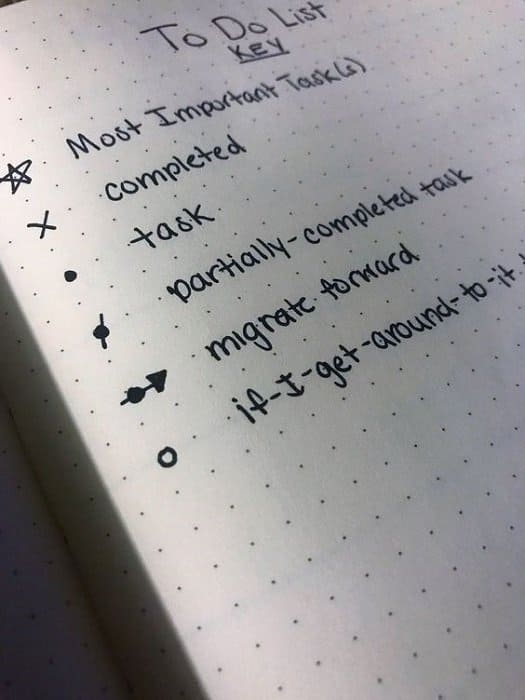 To Do List
KEY
Most Important Task(s)
completed
task
partially-completed task
migrate forward
if-I-get-around-to-it